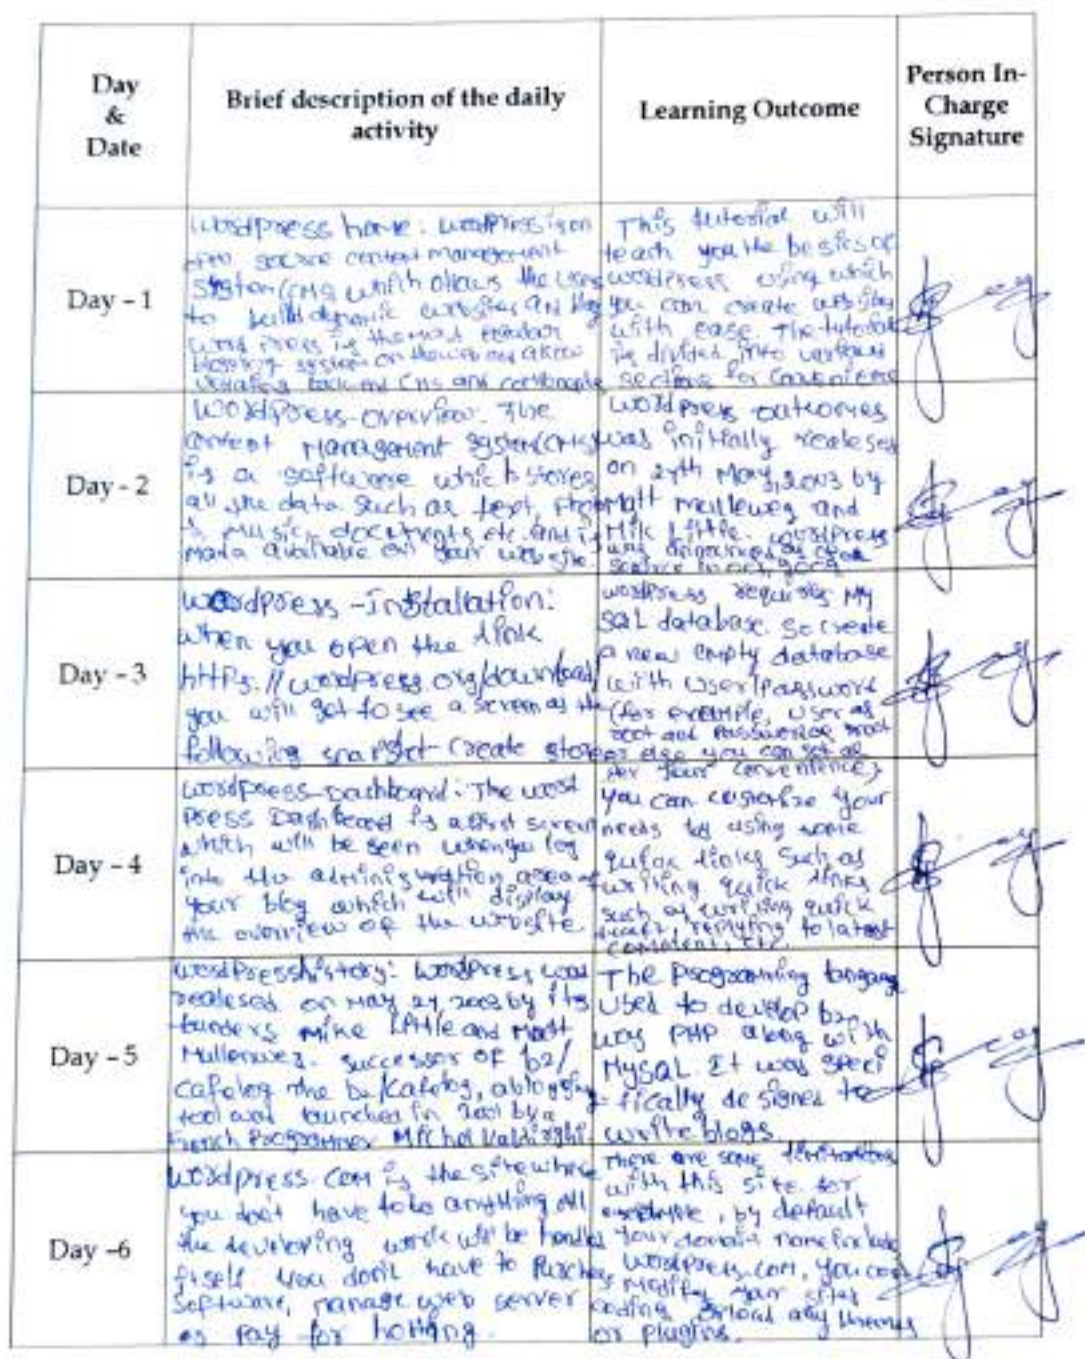 Day
&
Date
Brief description of the daily
activity
Learning Outcome
Person In-
Charge
Signature
Day - 1
wordpress home: wordpress is an
source content management
System (CMS) which allows the users
to build dynamic websites and blog
word press is the most
blogging system on the web and allow
updating backend CMS and
This tutorial will
teach you the basics of
wordpress using which
you can create websites
with ease. The tutorial
is divided into various
sections for convenience
Day - 2
wordpress-overview. The
content Management System (CMS)
is a software which stores
all the data such as text,
music, documents etc. and is
made available on your website
wordpress outcomes
was initially realesed
on 27th May, 2003 by
Matt mulleweg and
Mik Little. wordpress
was as
source in
Day - 3
wordpress - Installation:
when you open the link
https://wordpress.org/download/
you will get to see a screen as the
following snapshot - Create
wordpress requires My
SQL database. so create
a new empty database
with user/password
(for example, user as
root and password as root
or else you can set as
per your convenience)
Day - 4
wordpress-Dashboard: The word
press Dashboard is a first screen
which will be seen when you log
into the administration area of
your blog which will display
the overview of the website
you can customize your
needs by using some
quick links such as
writing quick links
such as writing quick
replying to latest
comment, etc.
Day - 5
wordpress history: wordpress was
realesed on May 27 2003 by its
founders Mike little and Matt
Mullenweg. successor of b2/
cafelog The b2/cafelog, a blogging
tool was launched in 2001 by a
french programmer Michel
The programming
used to develop
was PHP along with
MySQL. It was speci
fically designed to
write blogs.
Day -6
wordpress.com is the site where
you don't have to be anything all
the developing work will be
itself. You don't have to
software, manage web server
or pay for
There are some
with this site. for
example, by default
your domain name include
wordpress.com, you can
modify your sites
coding or load any themes
or plugins.